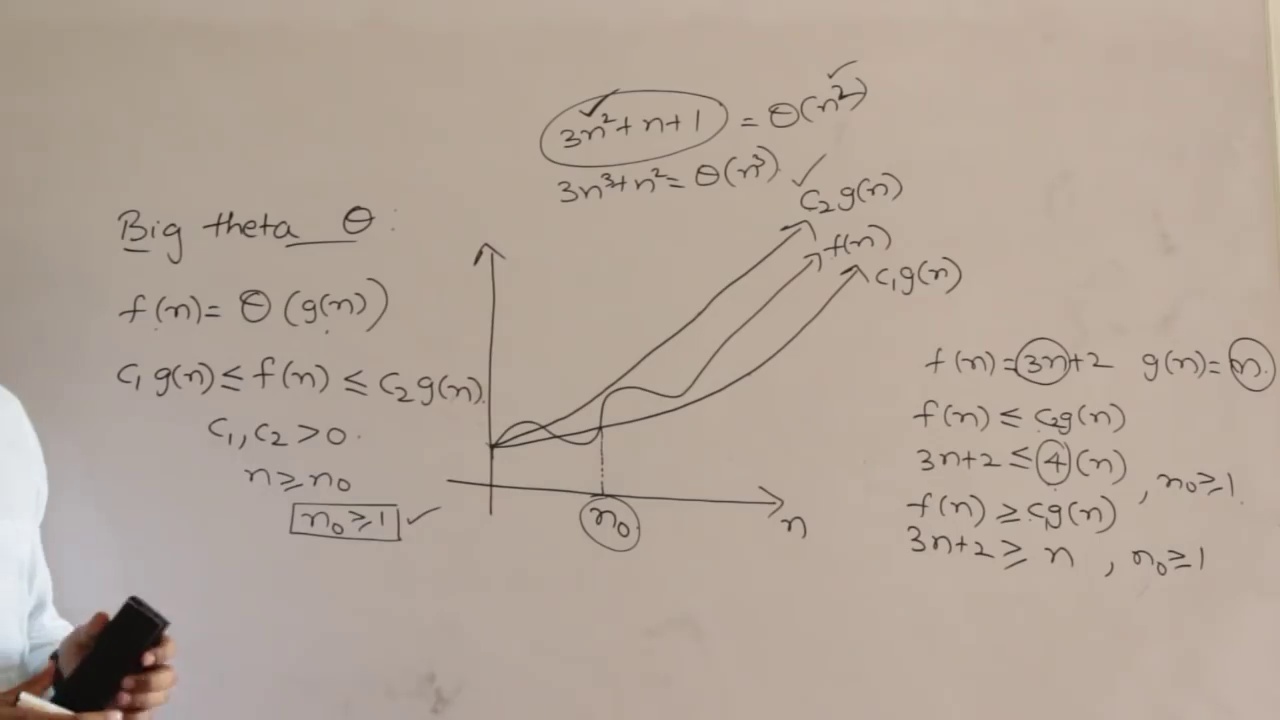 3n²+n+1 = Θ(n²)
3n³+n² = Θ(n³)
Big theta Θ:
f(n) = Θ(g(n))
c₁g(n) ≤ f(n) ≤ c₂g(n).
c₁, c₂ > 0.
n ≥ n₀
n₀ ≥ 1
c₂g(n)
f(n)
c₁g(n)
n₀
n
f(n) = 3n+2 g(n) = n.
f(n) ≤ c₂g(n)
3n+2 ≤ 4(n) , n₀ ≥ 1.
f(n) ≥ c₁g(n)
3n+2 ≥ n , n₀ ≥ 1